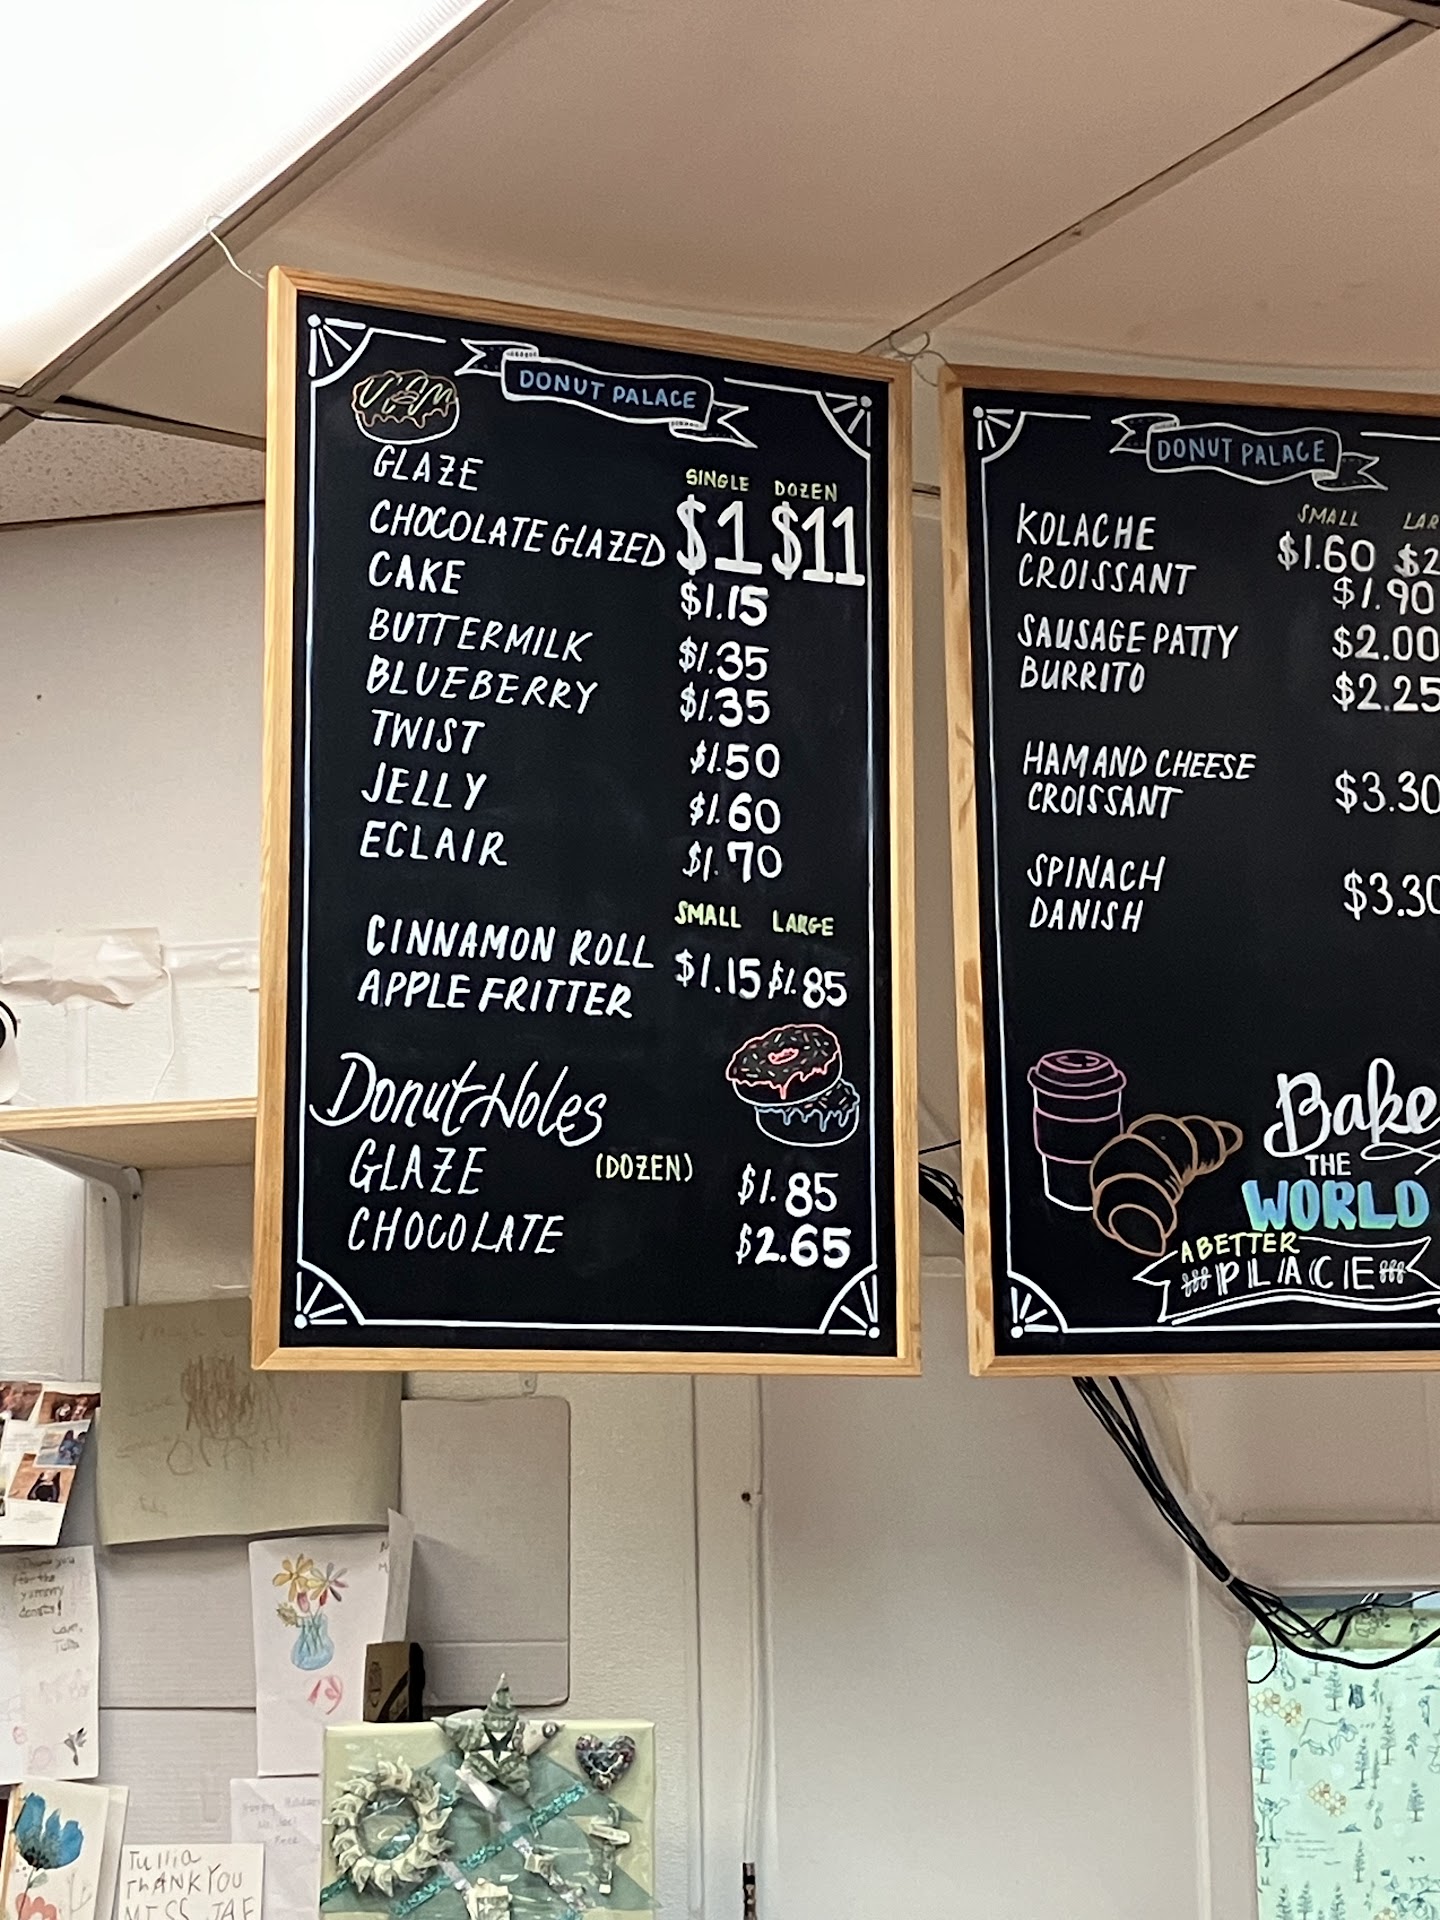 DONUT PALACE
SINGLE DOZEN
GLAZE
CHOCOLATE GLAZED $1 $11
CAKE $1.15
BUTTERMILK $1.35
BLUEBERRY $1.35
TWIST $1.50
JELLY $1.60
ECLAIR $1.70
SMALL LARGE
CINNAMON ROLL $1.15 $1.85
APPLE FRITTER
Donut Holes
GLAZE (DOZEN) $1.85
CHOCOLATE $2.65
DONUT PALACE
SMALL LAR
KOLACHE $1.60 $2
CROISSANT $1.90
SAUSAGE PATTY $2.00
BURRITO $2.25
HAM AND CHEESE
CROISSANT $3.30
SPINACH
DANISH $3.30
Bake
THE
WORLD
A BETTER
PLACE
Thank you
for the
yummy
donuts!
Love,
Tullia
THANK YOU
MISS JAE